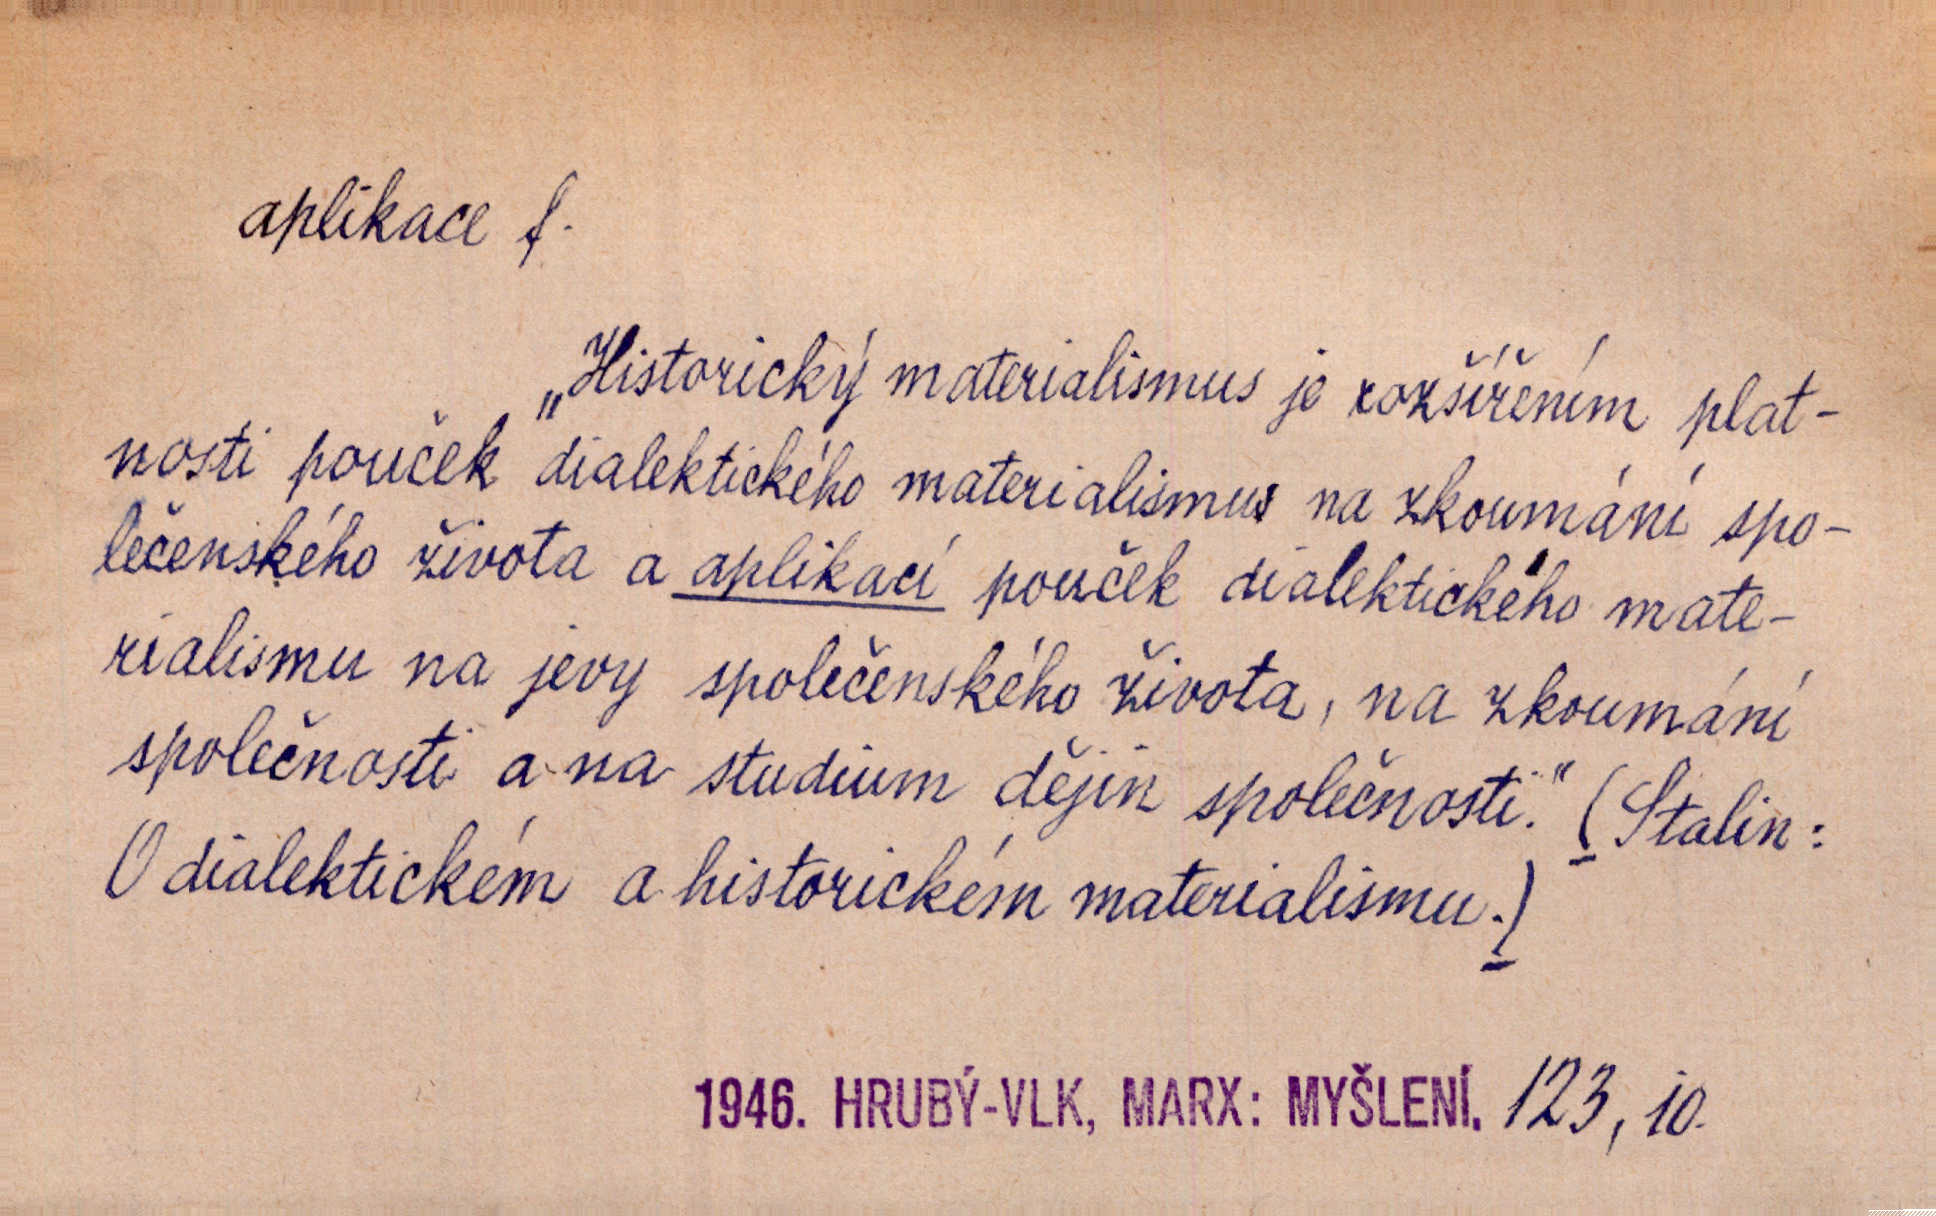 aplikace f.
„Historický materialismus je rozšířením plat-
nosti pouček dialektického materialismus na zkoumání spo-
lečenského života a aplikací pouček dialektického mate-
rialismu na jevy společenského života, na zkoumání
společnosti a na studium dějin společnosti." (Stalin:
O dialektickém a historickém materialismu.)
1946. HRUBÝ-VLK, MARX: MYŠLENÍ. 123, io.